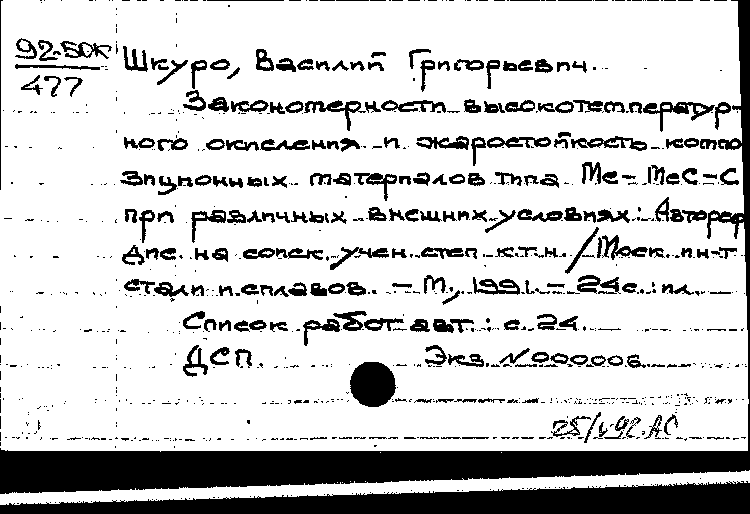 92-5ДК
477
Шкуро, Василий Григорьевич.
Закономерности высокотемператур-
ного окисления и жаростойкость компо
зиционных материалов типа Ме-МеС-С
при различных внешних условиях: Автореф
дис. на соиск. учен. степ к.т.н. / Моск. ин-т
стали и сплавов. - М., 1991. - 24с.: ил.
Список работ авт.: с. 24.
ДСП. Экз. N000006
25/V-92. АС